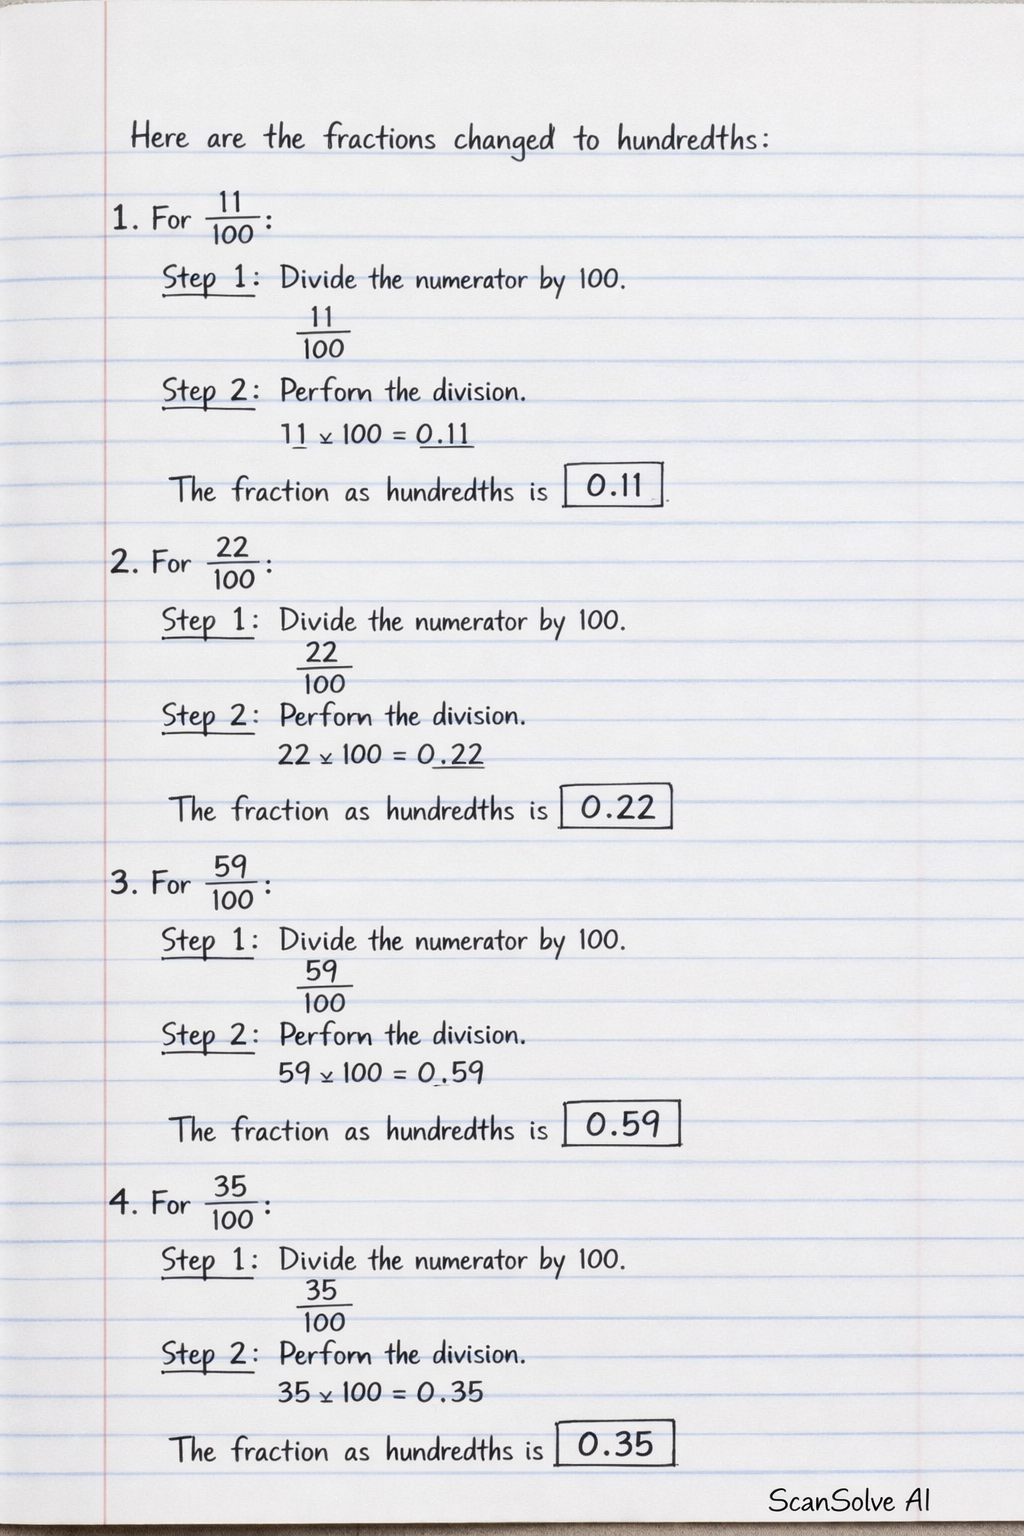 Here are the fractions changed to hundredths:
1. For 11/100 :
Step 1: Divide the numerator by 100.
11/100
Step 2: Perforn the division.
11 × 100 = 0.11
The fraction as hundredths is 0.11
2. For 22/100 :
Step 1: Divide the numerator by 100.
22/100
Step 2: Perforn the division.
22 × 100 = 0.22
The fraction as hundredths is 0.22
3. For 59/100 :
Step 1: Divide the numerator by 100.
59/100
Step 2: Perforn the division.
59 × 100 = 0.59
The fraction as hundredths is 0.59
4. For 35/100 :
Step 1: Divide the numerator by 100.
35/100
Step 2: Perforn the division.
35 × 100 = 0.35
The fraction as hundredths is 0.35
ScanSolve AI